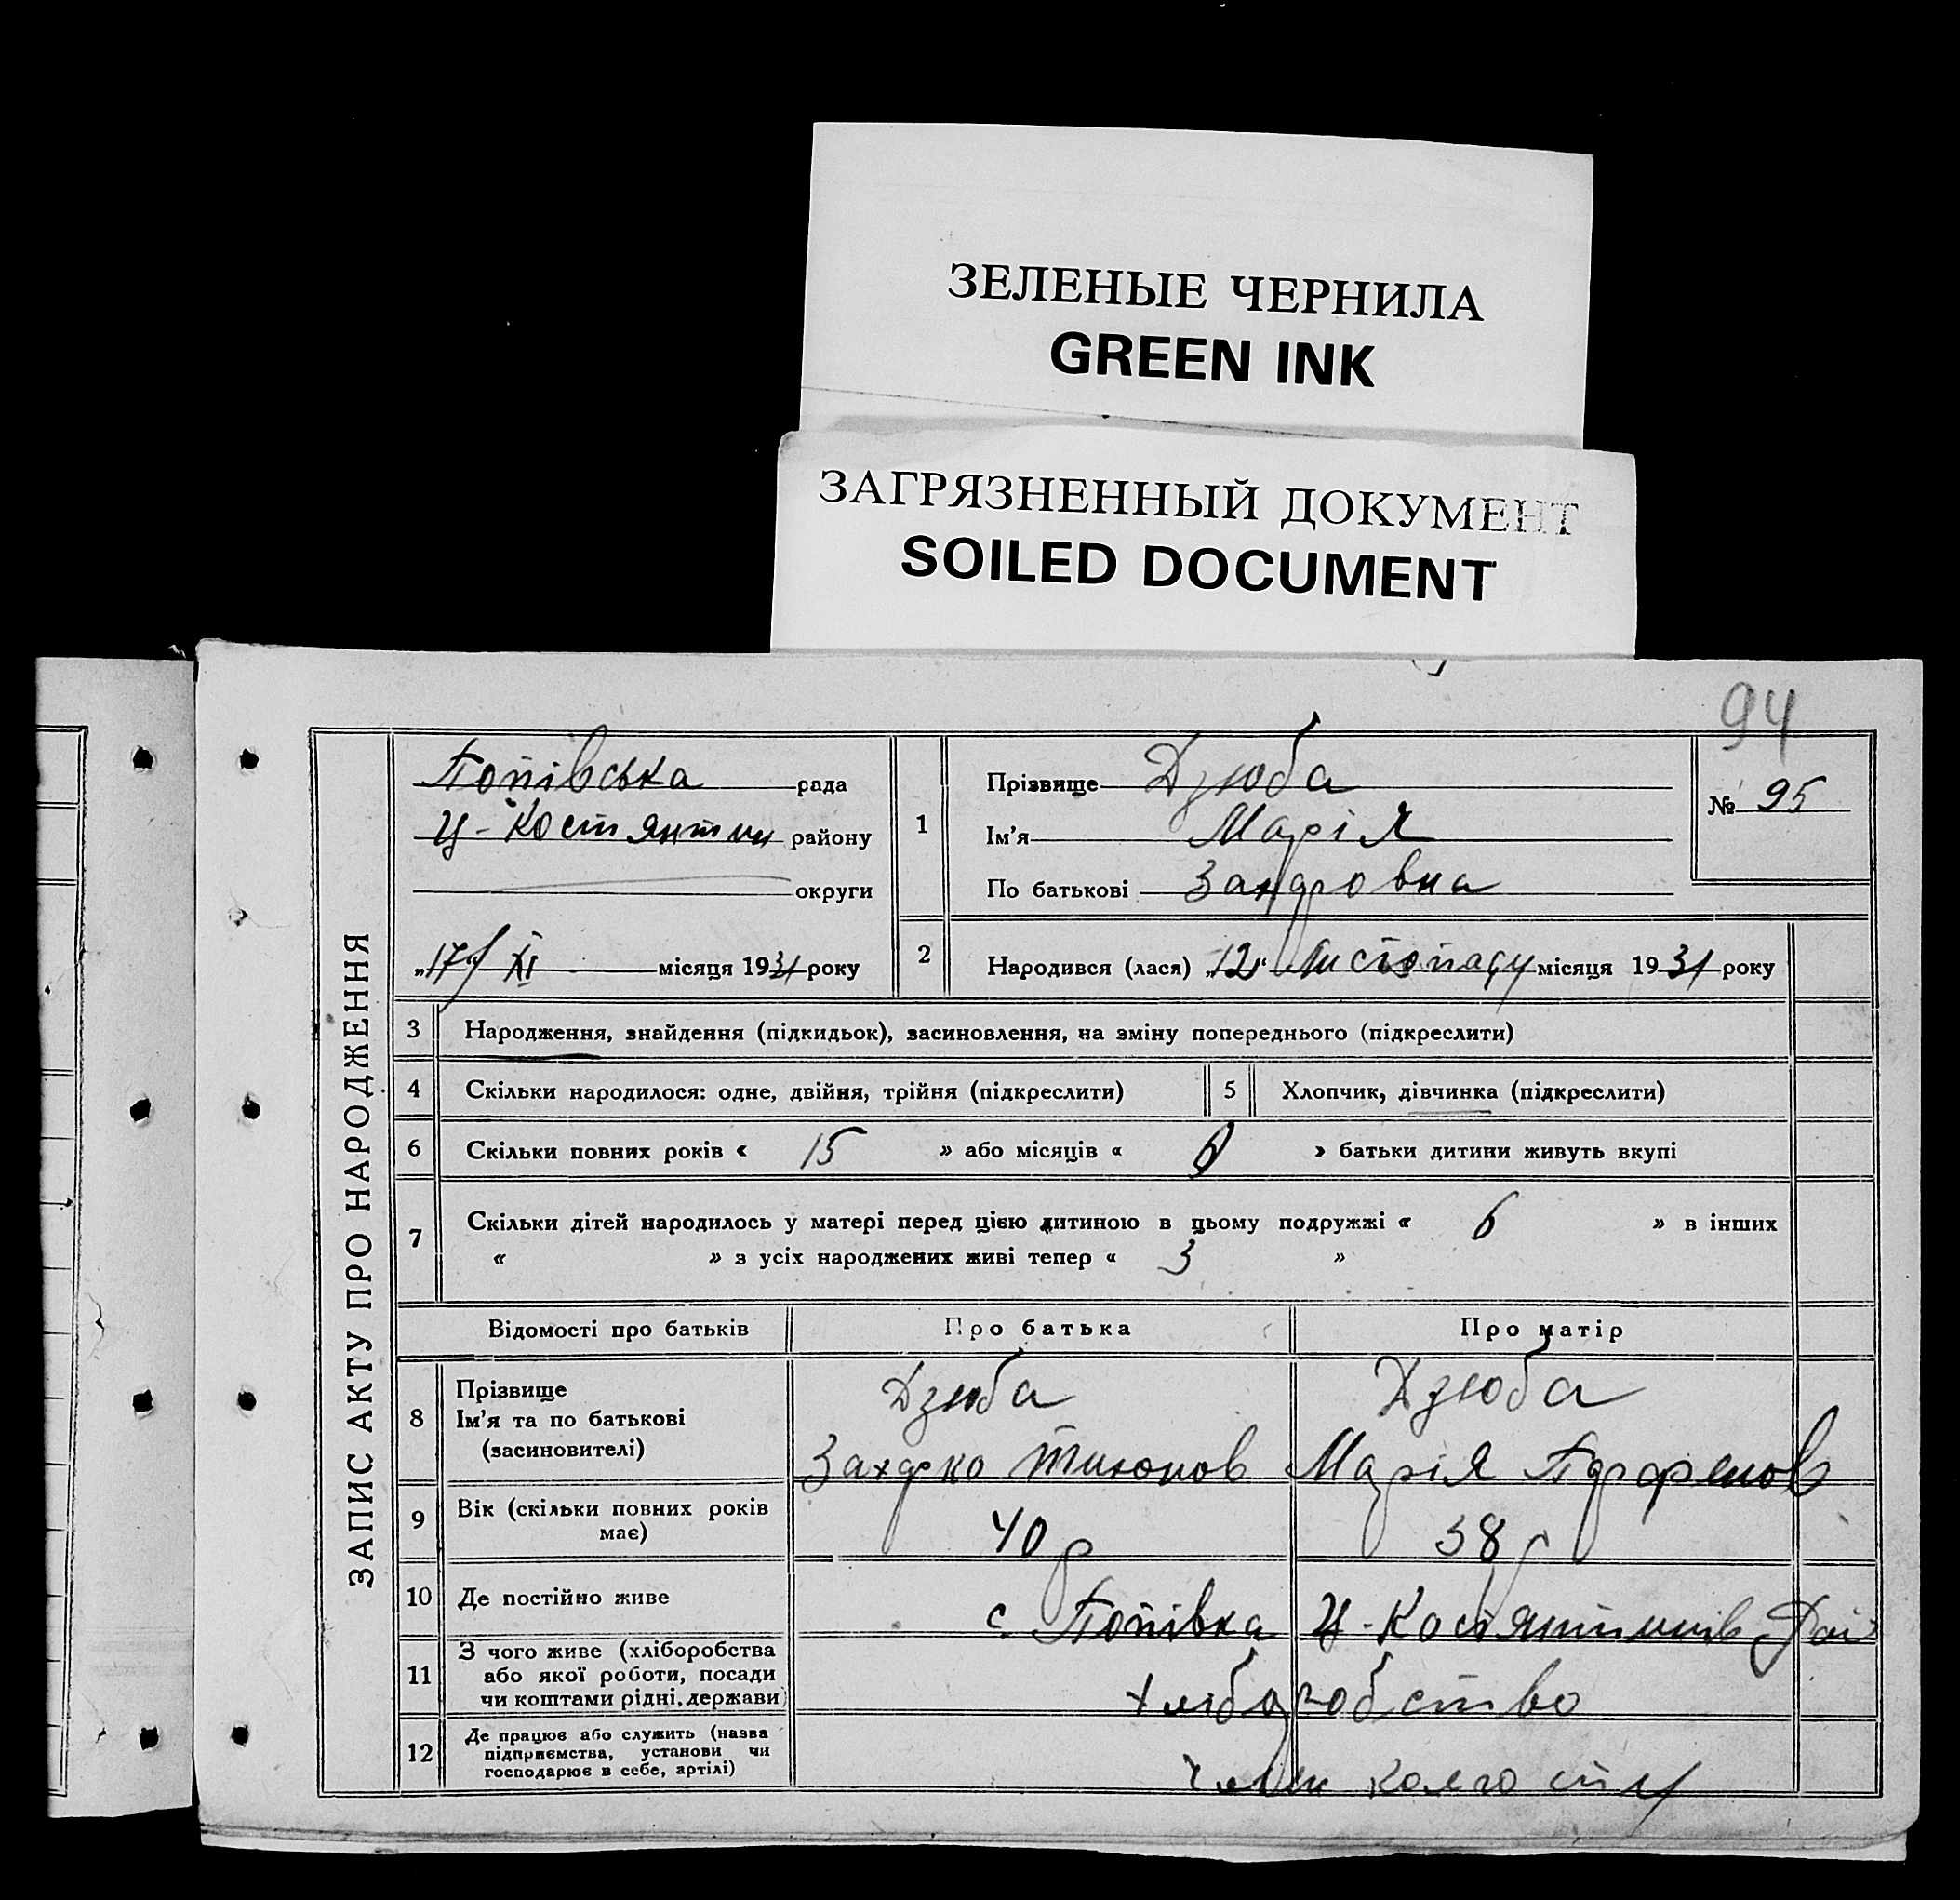 ЗЕЛЕНЫЕ ЧЕРНИЛА
GREEN INK
ЗАГРЯЗНЕННЫЙ ДОКУМЕНТ
SOILED DOCUMENT
94
ЗАПИС АКТУ ПРО НАРОДЖЕННЯ
Попівська рада
Ц-Костянтин району
округи
„17“ XI місяця 1931 року
1
Прізвище Дзюба
Ім'я Марія
По батькові
№ 95
2
Народився (лася) „12“ Листопаду місяця 1931 року
3 Народження, знайдення (підкидьок), засиновлення, на зміну попереднього (підкреслити)
4 Скільки народилося: одне, двійня, трійня (підкреслити) 5 Хлопчик, дівчинка (підкреслити)
6 Скільки повних років « 15 » або місяців « » батьки дитини живуть вкупі
7 Скільки дітей народилось у матері перед цією дитиною в цьому подружжі « 6 » в інших
« » з усіх народжених живі тепер « 3 »
Відомості про батьків Про батька Про матір
8 Прізвище Дзюба Дзюба
Ім'я та по батькові
(засиновителі) Марія Парфенов
9 Вік (скільки повних років має) 40 р 38 р
10 Де постійно живе с. Попівка Ц-Костянтинів Рай
11 З чого живе (хліборобства
або якої роботи, посади
чи коштами рідні, держави) хліборобство
12 Де працює або служить (назва
підприємства, установи чи
господарює в себе, артілі) член колгоспу